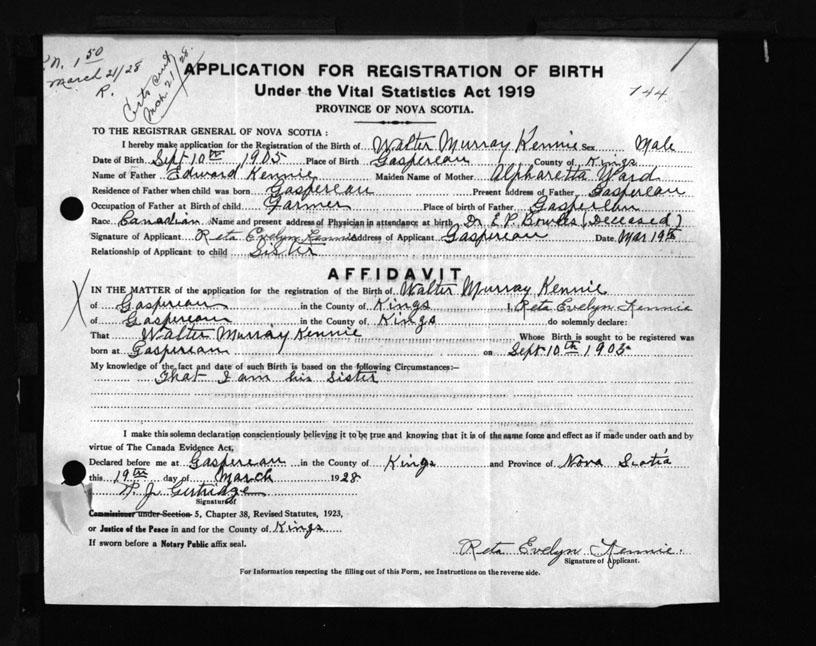 P.N. 1 50
March 21/28
R.
Certs Cent
Mch 21/28.
APPLICATION FOR REGISTRATION OF BIRTH
Under the Vital Statistics Act 1919
144
PROVINCE OF NOVA SCOTIA.
TO THE REGISTRAR GENERAL OF NOVA SCOTIA:
I hereby make application for the Registration of the Birth of Walter Murray Kennie Sex Male
Date of Birth Sept 10th 1905 Place of Birth Gaspereau County of Kings
Name of Father Edward Kennie Maiden Name of Mother Alpharetta Ward
Residence of Father when child was born Gaspereau Present address of Father Gaspereau
Occupation of Father at Birth of child Farmer Place of birth of Father Gaspereau
Race Canadian Name and present address of Physician in attendance at birth Dr. E.P. Bowles (Deceased)
Signature of Applicant Reta Evelyn Kennie Address of Applicant Gaspereau Date Mar 19th
Relationship of Applicant to child Sister
AFFIDAVIT
IN THE MATTER of the application for the registration of the Birth of Walter Murray Kennie
of Gaspereau in the County of Kings I, Reta Evelyn Kennie
of Gaspereau in the County of Kings do solemnly declare:
That Walter Murray Kennie Whose Birth is sought to be registered was
born at Gaspereau on Sept 10th 1905
My knowledge of the fact and date of such Birth is based on the following Circumstances:—
That I am his Sister
I make this solemn declaration conscientiously believing it to be true and knowing that it is of the same force and effect as if made under oath and by
virtue of The Canada Evidence Act,
Declared before me at Gaspereau in the County of Kings and Province of Nova Scotia
this 19th day of March 1928
J. Gertridge
Signature of
Commissioner under Section 5, Chapter 38, Revised Statutes, 1923,
or Justice of the Peace in and for the County of Kings
If sworn before a Notary Public affix seal.
Reta Evelyn Kennie
Signature of Applicant.
For Information respecting the filling out of this Form, see Instructions on the reverse side.